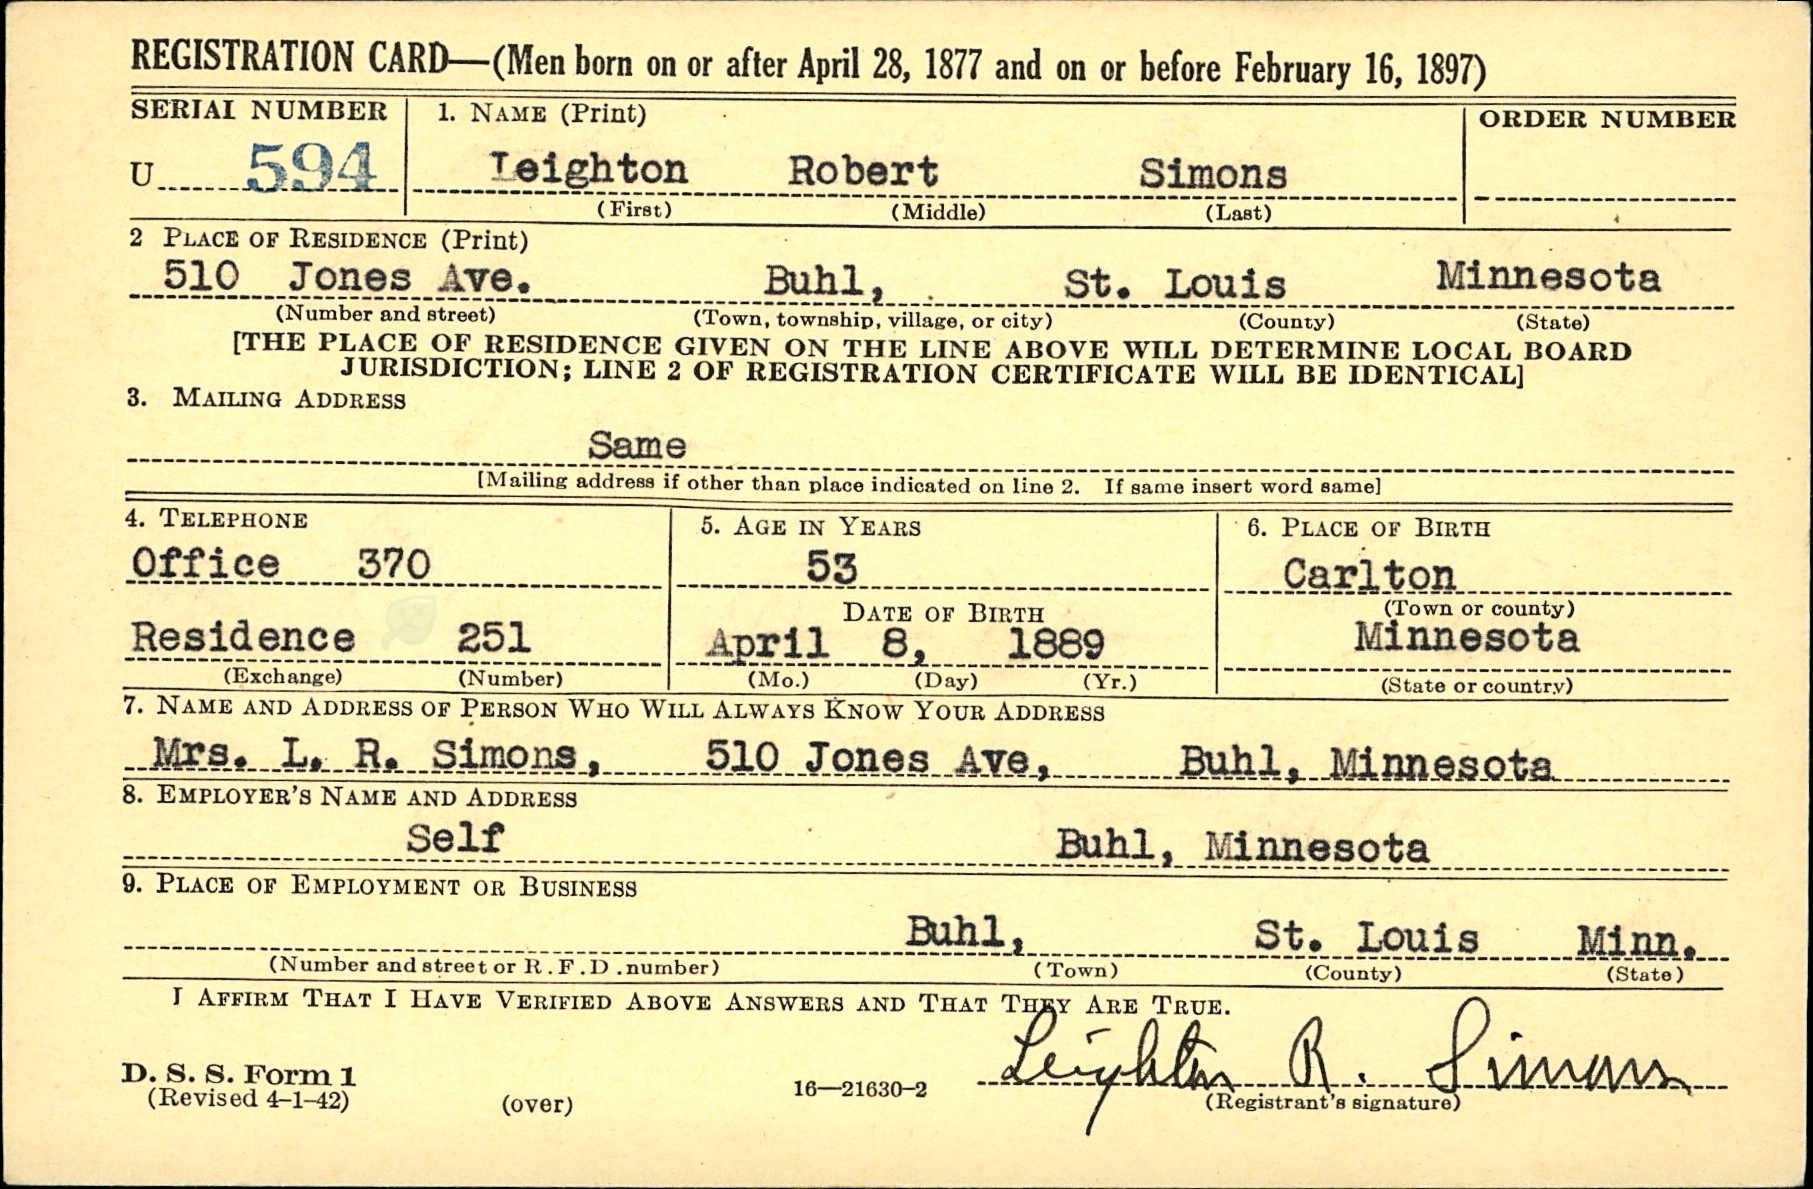 REGISTRATION CARD—(Men born on or after April 28, 1877 and on or before February 16, 1897)
SERIAL NUMBER 1. NAME (Print) ORDER NUMBER
U 594 Leighton Robert Simons
(First) (Middle) (Last)
2 PLACE OF RESIDENCE (Print)
510 Jones Ave. Buhl, St. Louis Minnesota
(Number and street) (Town, township, village, or city) (County) (State)
[THE PLACE OF RESIDENCE GIVEN ON THE LINE ABOVE WILL DETERMINE LOCAL BOARD
JURISDICTION; LINE 2 OF REGISTRATION CERTIFICATE WILL BE IDENTICAL]
3. MAILING ADDRESS
Same
[Mailing address if other than place indicated on line 2. If same insert word same]
4. TELEPHONE 5. AGE IN YEARS 6. PLACE OF BIRTH
Office 370 53 Carlton
DATE OF BIRTH (Town or county)
Residence 251 April 8, 1889 Minnesota
(Exchange) (Number) (Mo.) (Day) (Yr.) (State or country)
7. NAME AND ADDRESS OF PERSON WHO WILL ALWAYS KNOW YOUR ADDRESS
Mrs. L. R. Simons, 510 Jones Ave, Buhl, Minnesota
8. EMPLOYER'S NAME AND ADDRESS
Self Buhl, Minnesota
9. PLACE OF EMPLOYMENT OR BUSINESS
Buhl, St. Louis Minn.
(Number and street or R.F.D. number) (Town) (County) (State)
I AFFIRM THAT I HAVE VERIFIED ABOVE ANSWERS AND THAT THEY ARE TRUE.
Leighton R. Simons
D. S. S. Form 1
(Revised 4-1-42) (over) 16—21630-2 (Registrant's signature)